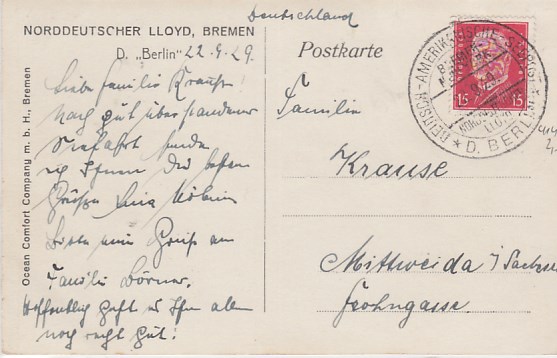 Deutschland
NORDDEUTSCHER LLOYD, BREMEN
D. „Berlin" 22.9.29.
Postkarte
Liebe Familie Krause!
nach gut überstandener
Seefahrt sende
ich Ihnen die besten
Grüße
Bitte ein Gruß an
Familie Börner.
Hoffentlich geht es Ihnen allen
noch recht gut!
Familie
Krause
Mittweida i/Sachsen
Frohngasse
Ocean Comfort Company m. b. H., Bremen
15 15
DEUTSCH-AMERIKANISCHE SEEPOST
BREMEN
NORDD.
LLOYD
* D. BERLIN